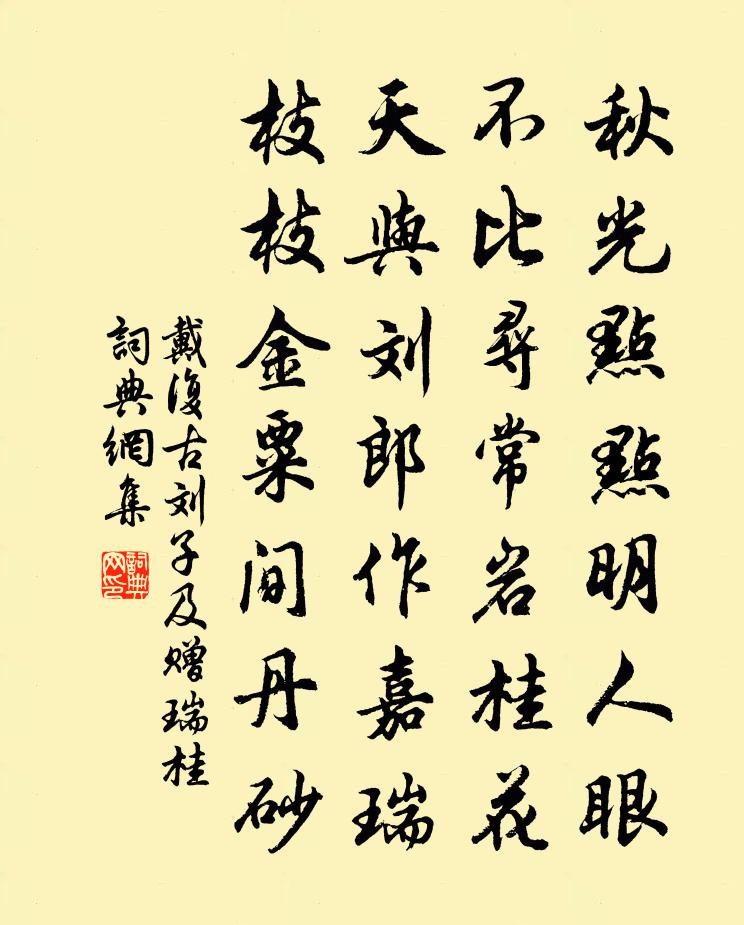 秋光點點明人眼
不比尋常岩桂花
天與刘郎作嘉瑞
枝枝金粟间丹砂
戴復古刘子及赠瑞桂
詞典網集
詞典網印